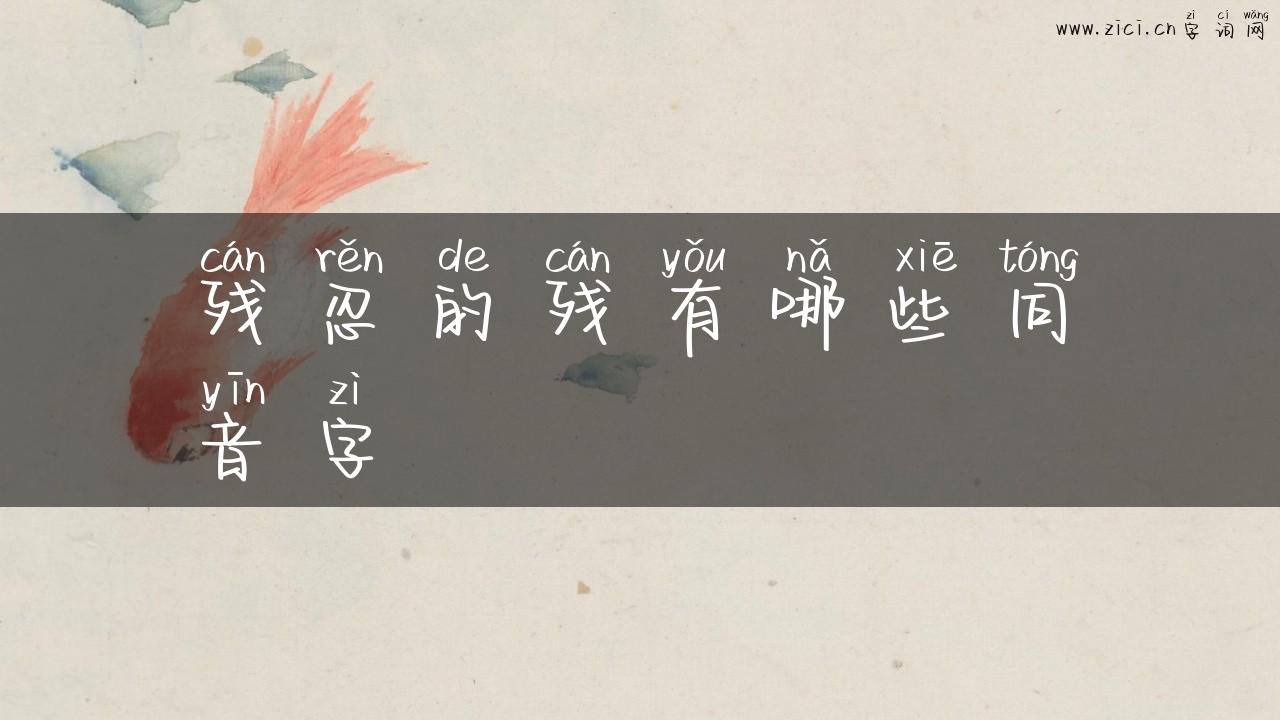 zì cí wǎng
www.zici.cn 字词网
cán rěn de cán yǒu nǎ xiē tóng
残忍的残有哪些同
yīn zì
音字